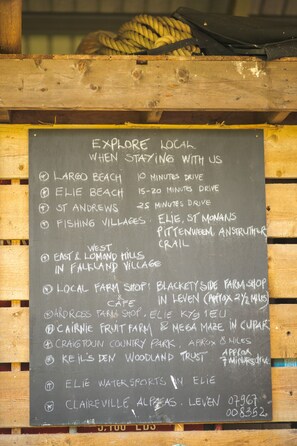 EXPLORE LOCAL
WHEN STAYING WITH US
LARGO BEACH 10 MINUTES DRIVE
ELIE BEACH 15-20 MINUTES DRIVE
ST ANDREWS 25 MINUTES DRIVE
FISHING VILLAGES. ELIE, ST MONANS
PITTENWEEM, ANSTRUTHER
CRAIL
WEST
EAST & LOMAND HILLS
IN FALKLAND VILLAGE
LOCAL FARM SHOP! BLACKETYSIDE FARM SHOP
& CAFE IN LEVEN (APPROX 2½ MILES)
ARDROSS FARM SHOP. ELIE KY9 1EU
CAIRNIE FRUIT FARM & MEGA MAZE IN CUPAR
CRAIGTOUN COUNTRY PARK. APROX 8 MILES
KEIL'S DEN WOODLAND TRUST APPROX
7 MINUTES
ELIE WATERSPORTS IN ELIE
CLAIREVILLE ALPACAS. LEVEN 07967
008352
LBS